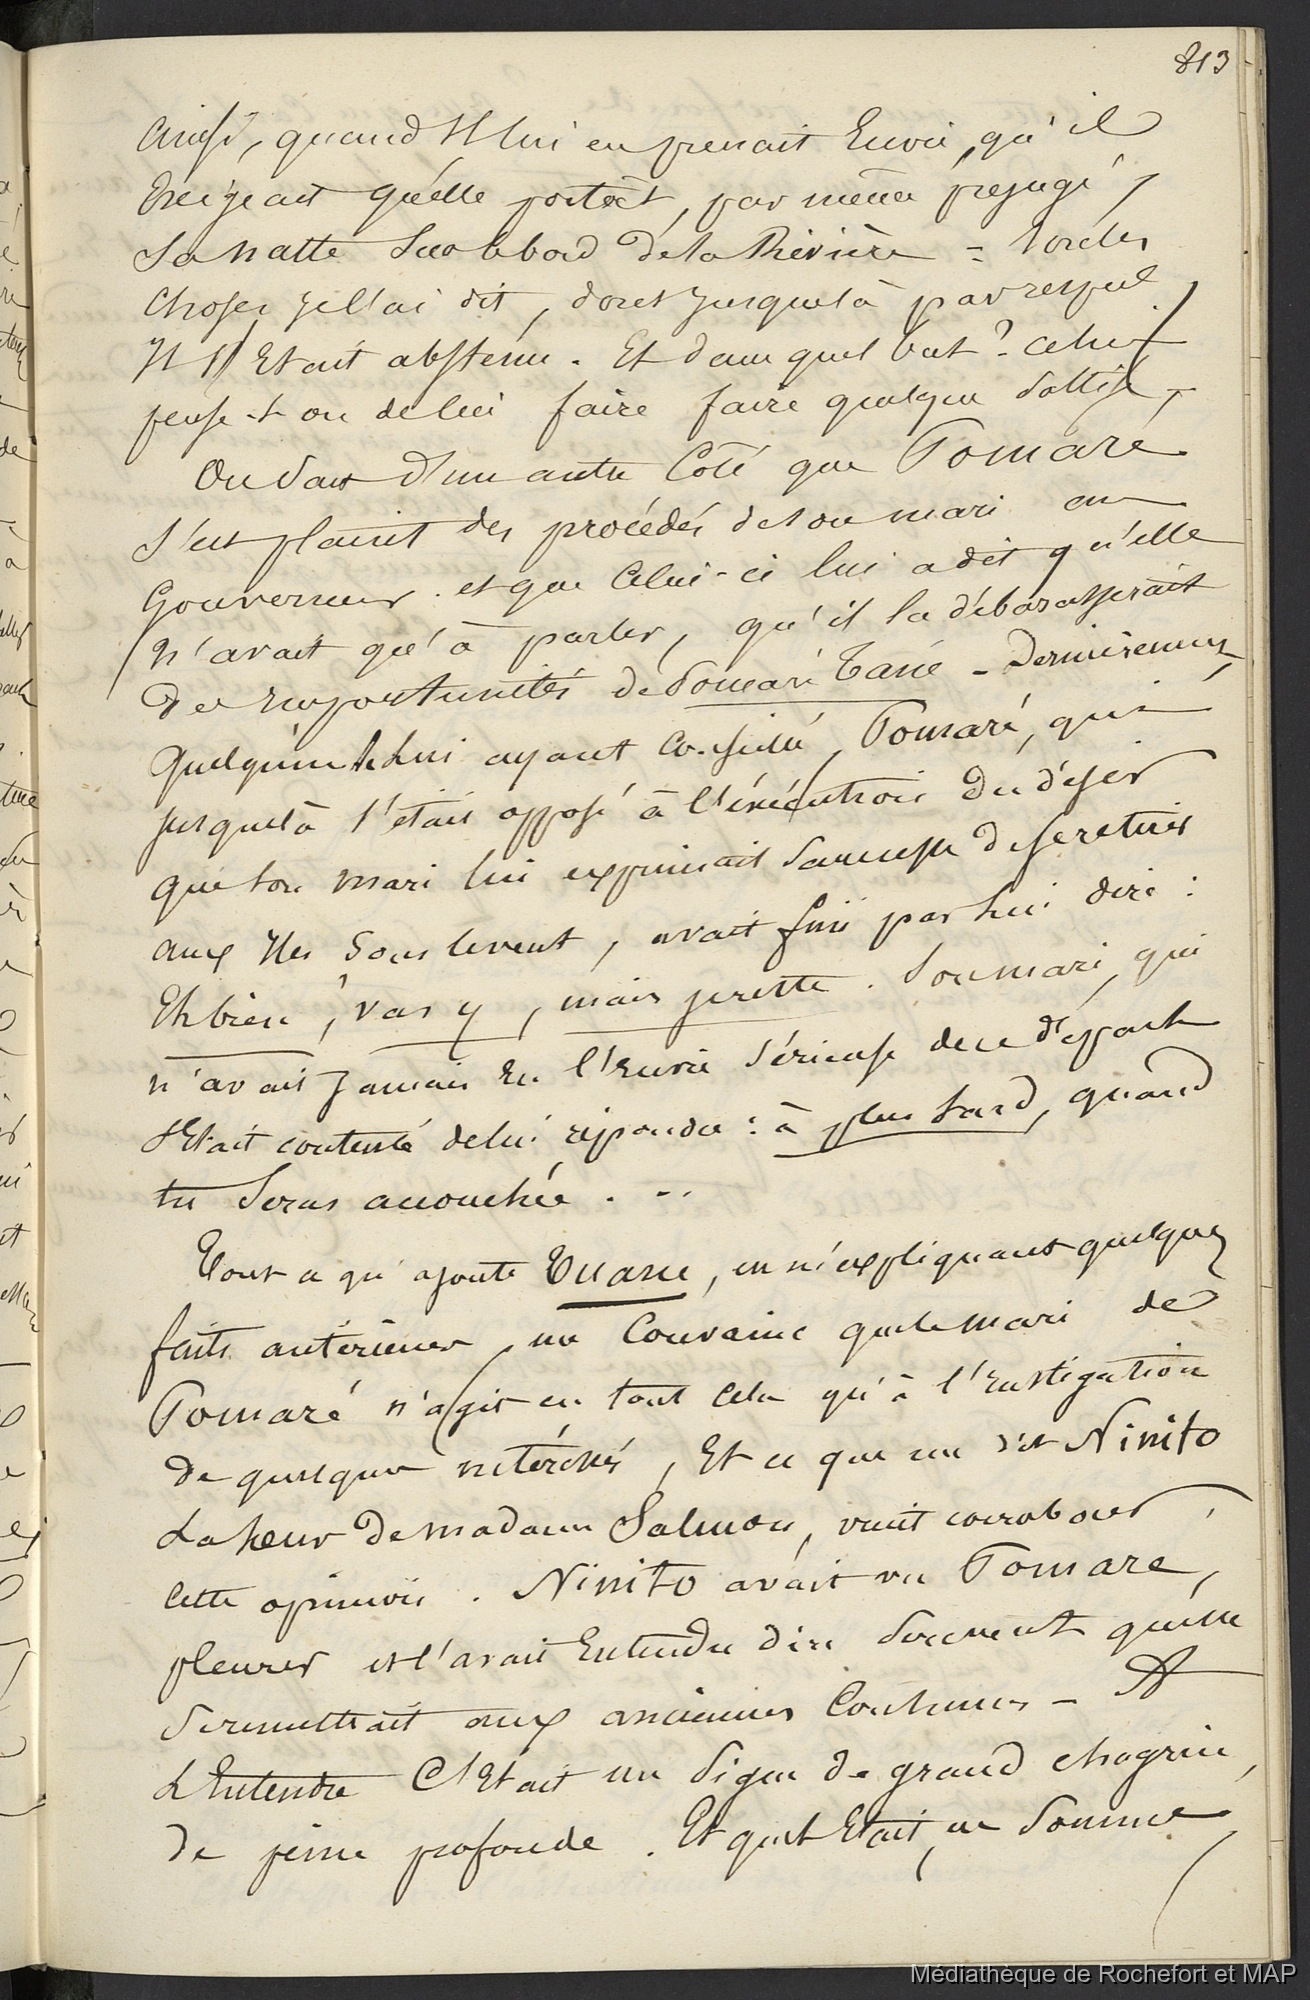 813
Ainsi, quand Il lui en prenait Envie, qu'il
Exigeait qu'elle portât, par même préjugé,
Sa natte Sur le bord de la Rivière = toutes
choses je l'ai dit, dont jusque là par respect
Il S'Etait abstenu. Et dans quel but ? celui
pense-t-on de lui faire faire quelque Sottise,
On Sait d'un autre Côté que Pomaré
S'est plaint des procédés de son mari au
Gouverneur. et que Celui-ci lui a dit qu'elle
n'avait qu'à parler, qu'il la débarasserait
des importunités de Pomaré Tané - Dernièrement
quelqu'un de lui ayant , Pomaré, qui
jusque là s'était opposé à l'exécution du désir
que son mari lui exprimait Sans cesse de se retirer
aux Iles Sous le vent, avait fini par lui dire :
Eh bien, vas y, mais je reste. Son mari, qui
n'avait Jamais Eu l'Envie Sérieuse de ce départ
s'Etait contenté de lui répondre : à plus tard, quand
tu Seras accouchée . - .
Tout ce qu'ajoute Tuane, en m'expliquant quelques
faits antérieurs, me Convainc que le mari de
Pomaré n'agit en tout Cela qu'à l'Instigation
de quelques intéressés, Et ce que me dit Ninito
La Sœur de madame Salmon, vient corroborer
Cette opinion. Ninito avait vu Pomaré,
pleurer et l'avait Entendu dire Sèrement qu'elle
Se remettrait aux anciennes Coutumes - A
L'Entendre C'Etait un Signe de grand chagrin,
de peine profonde. Et quel Etait, en Somme
Médiathèque de Rochefort et MAP